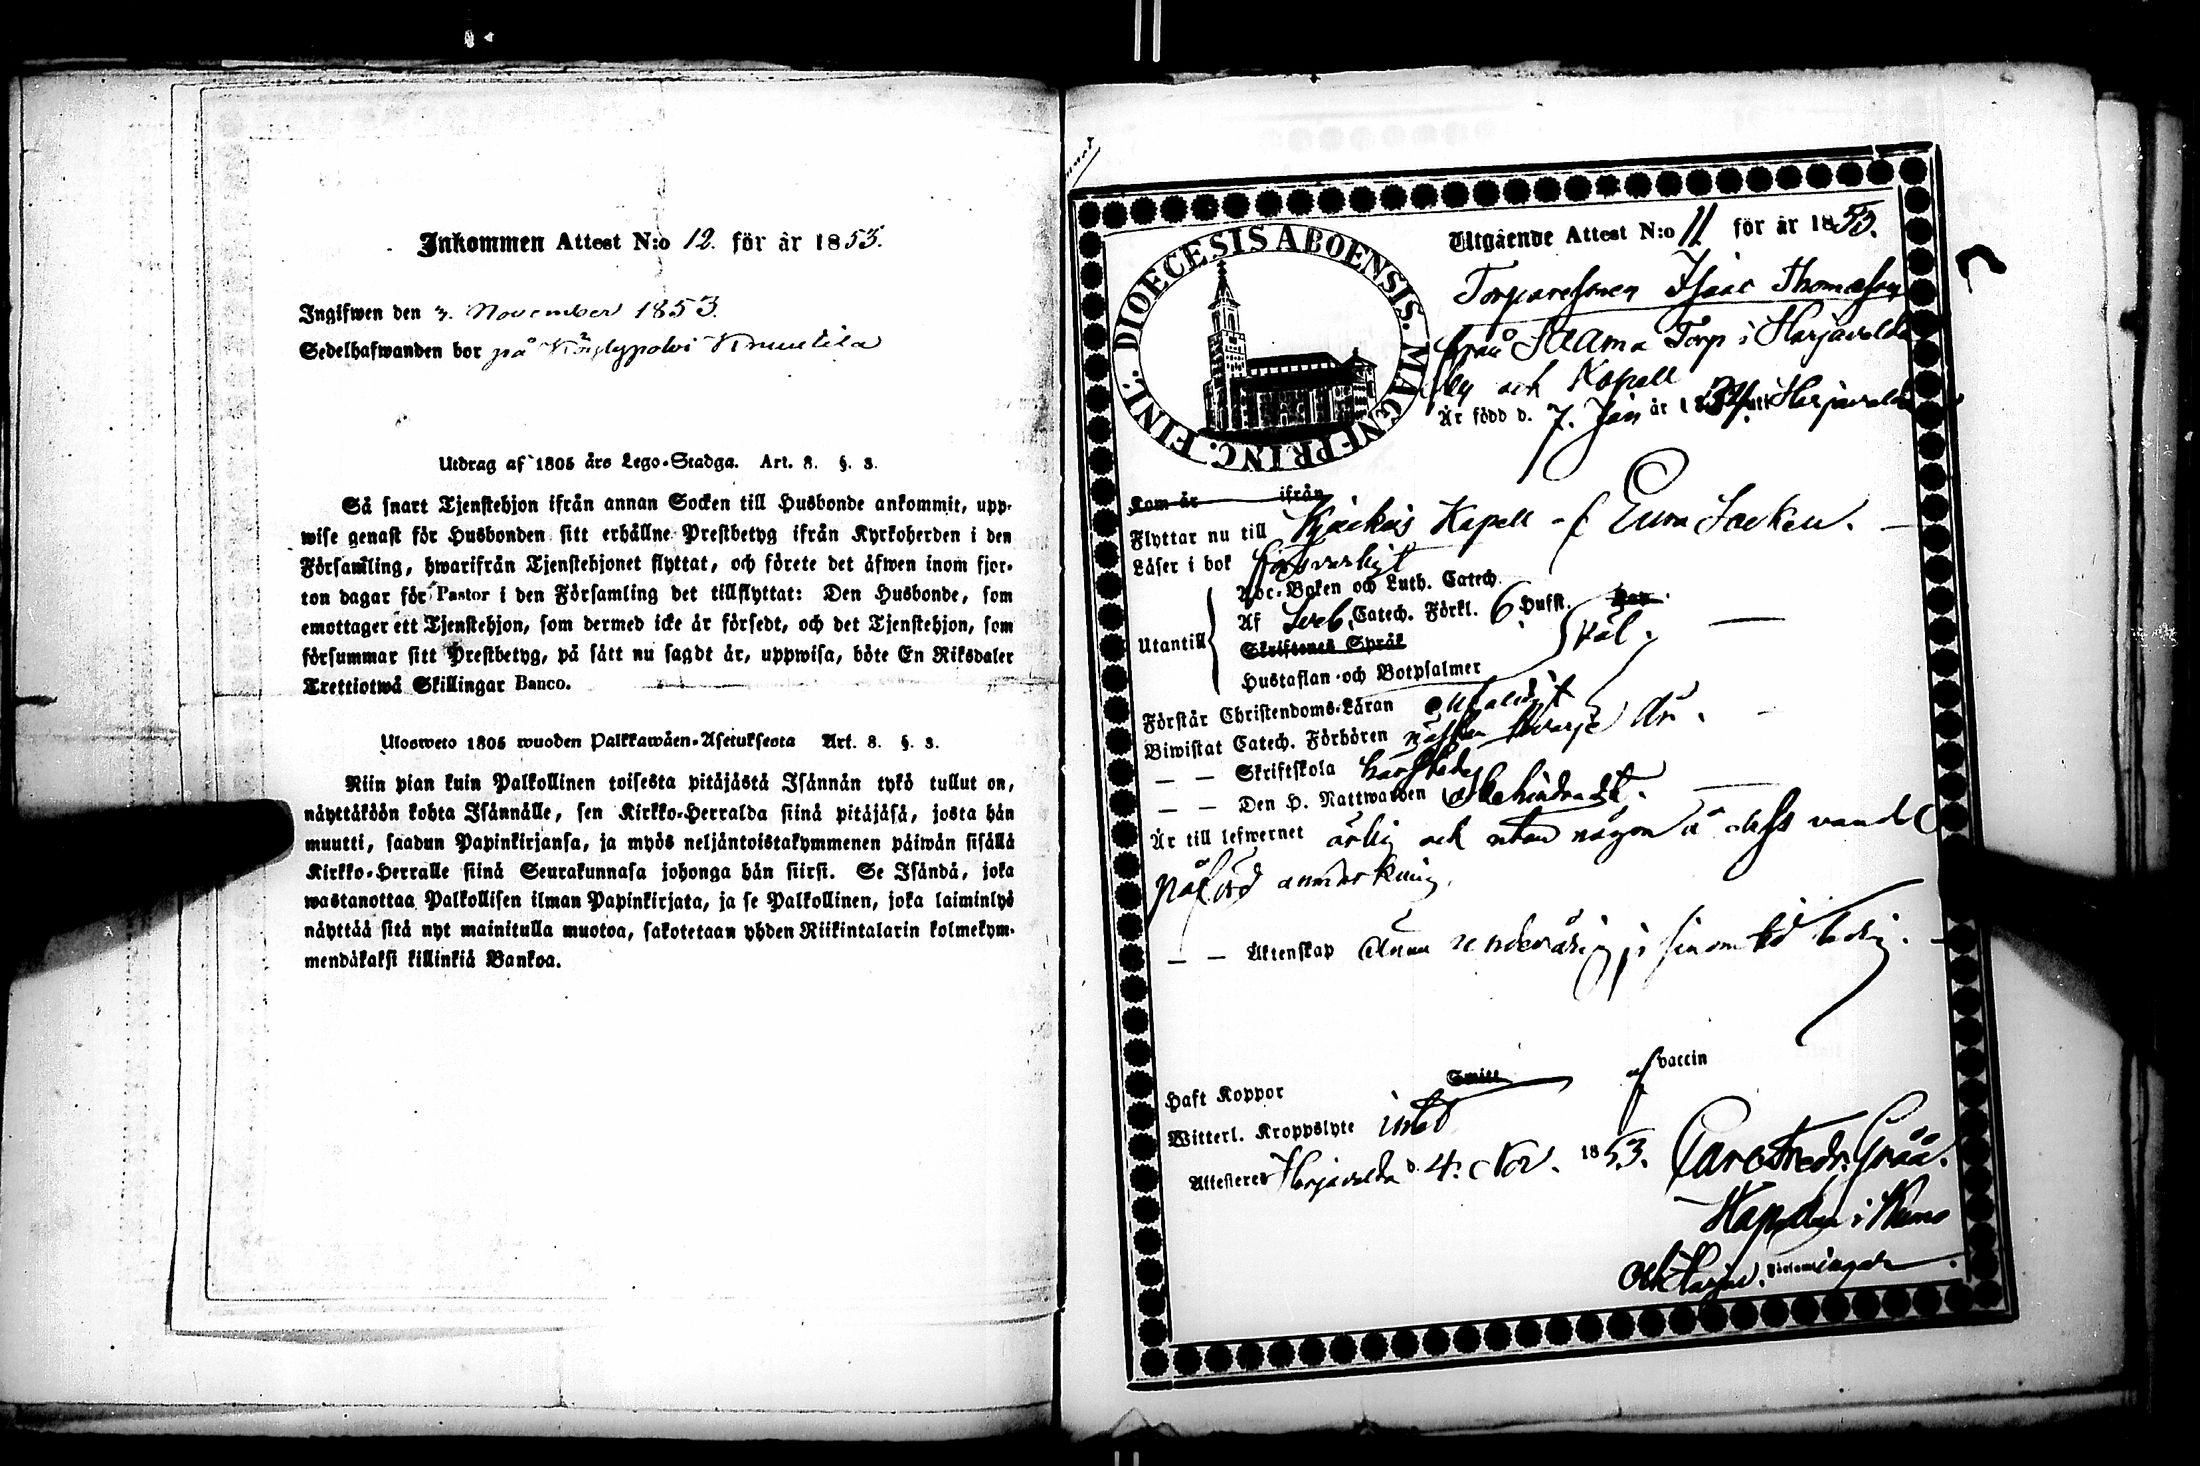 Inkommen Attest N:o 12. för år 1853.
Ingifwen den 3. November 1853.
Sedelhafwanden bor på Köylypolvi Knuutila
Utdrag af 1805 års Lego-Stadga. Art. 8. §. 3.
Så snart Tjenstehjon ifrån annan Socken till Husbonde ankommit, upp-
wise genast för Husbonden sitt erhållne Prestbetyg ifrån Kyrkoherden i den
Församling, hwarifrån Tjenstehjonet flyttat, och förete det äfwen inom fjor-
ton dagar för Pastor i den Församling det tillflyttat: Den Husbonde, som
emottager ett Tjenstehjon, som dermed icke är försedt, och det Tjenstehjon, som
försummar sitt Prestbetyg, på sätt nu sagdt är, uppwisa, böte En Riksdaler
Trettiotwå Skillingar Banco.
Ulosweto 1805 wuoden Palkkawäen-Asetuksesta Art. 8. §. 3.
Niin pian kuin Palkollinen toisesta pitäjästä Isännän tykö tullut on,
näyttäköön kohta Isännälle, sen Kirkko-Herralda siinä pitäjäsä, josta hän
muutti, saadun Papinkirjansa, ja myös neljäntoistakymmenen päiwän sisällä
Kirkko-Herralle siinä Seurakunnasa johonga hän siirsi. Se Isändä, joka
wastanottaa Palkollisen ilman Papinkirjata, ja se Palkollinen, joka laiminlyö
näyttää sitä nyt mainitulla muotoa, sakotetaan yhden Riikintalarin kolmekym-
mendäkaksi killinkiä Bankoa.
DIOECESIS ABOENSIS. MAGNI PRINC. FINL.
Utgående Attest N:o 11 för år 1853.
Torparesonen Isaac Thomasson
från Torp i Harjavalda
by och Kapell
Är född d. 7. Jan år 1834. i Harjavalda
Kom år ifrån
Flyttar nu till Kjukais Kapell af Eura Socken.
Läser i bok försvarligt
Utantill
Abc-Boken och Luth. Catech.
Af Sveb. Catech. Förkl. 6 Hufst.
Skriftenes Språk
väl.
Hustaflan och Botpsalmer
Förstår Christendoms-Läran
Biwistat Catech. Förhören nästan hvarje år.
— — Skriftskola
— — Den H. Nattwarden obehindradt.
Är till lefwernet ärlig och utan någon å dess vandel
påförd anmärkning.
— — Äktenskap ännu
Haft Koppor Smitt af vaccin
Witterl. Kroppslyte intet
Attesterer Harjavalda d. 4. Nov. 1853. Carl Fredr. Grää.
Kapellan i Kumo
och Harjav. Församlingar.